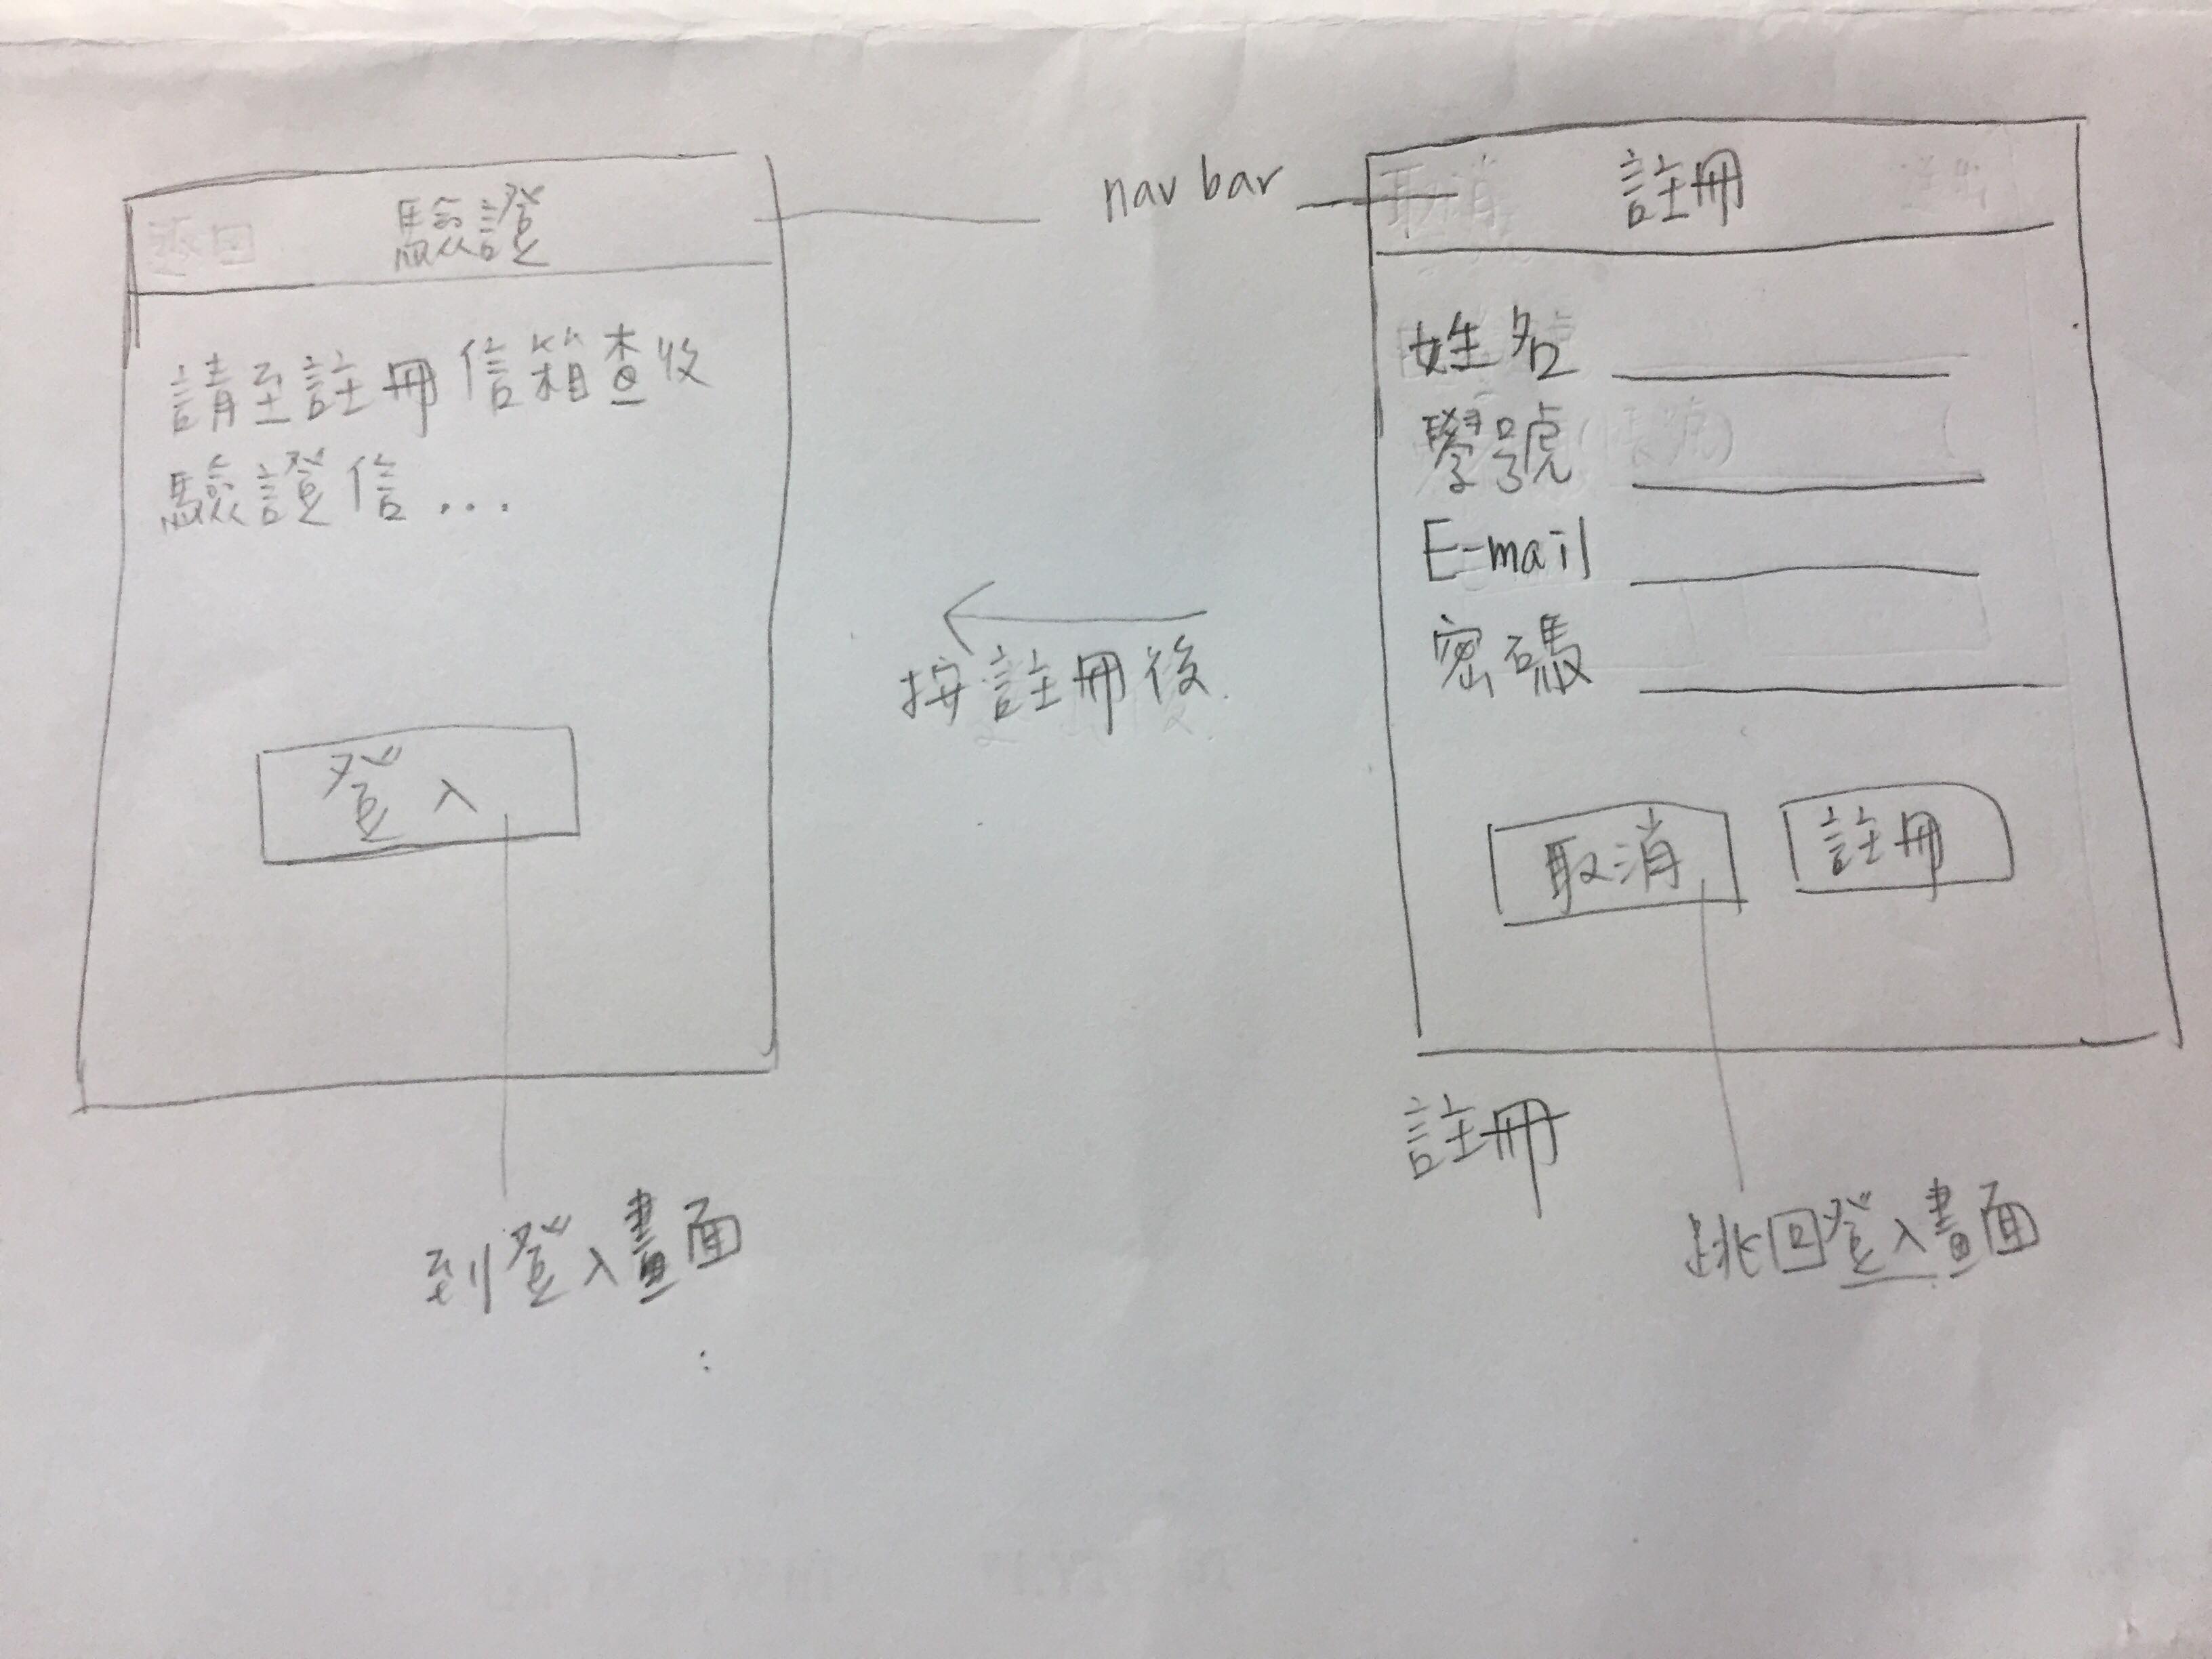 驗證
請至註冊信箱查收
驗證信...
登入
到登入畫面
nav bar
按註冊後
註冊
姓名
學號
E-mail
密碼
取消 註冊
註冊
跳回登入畫面